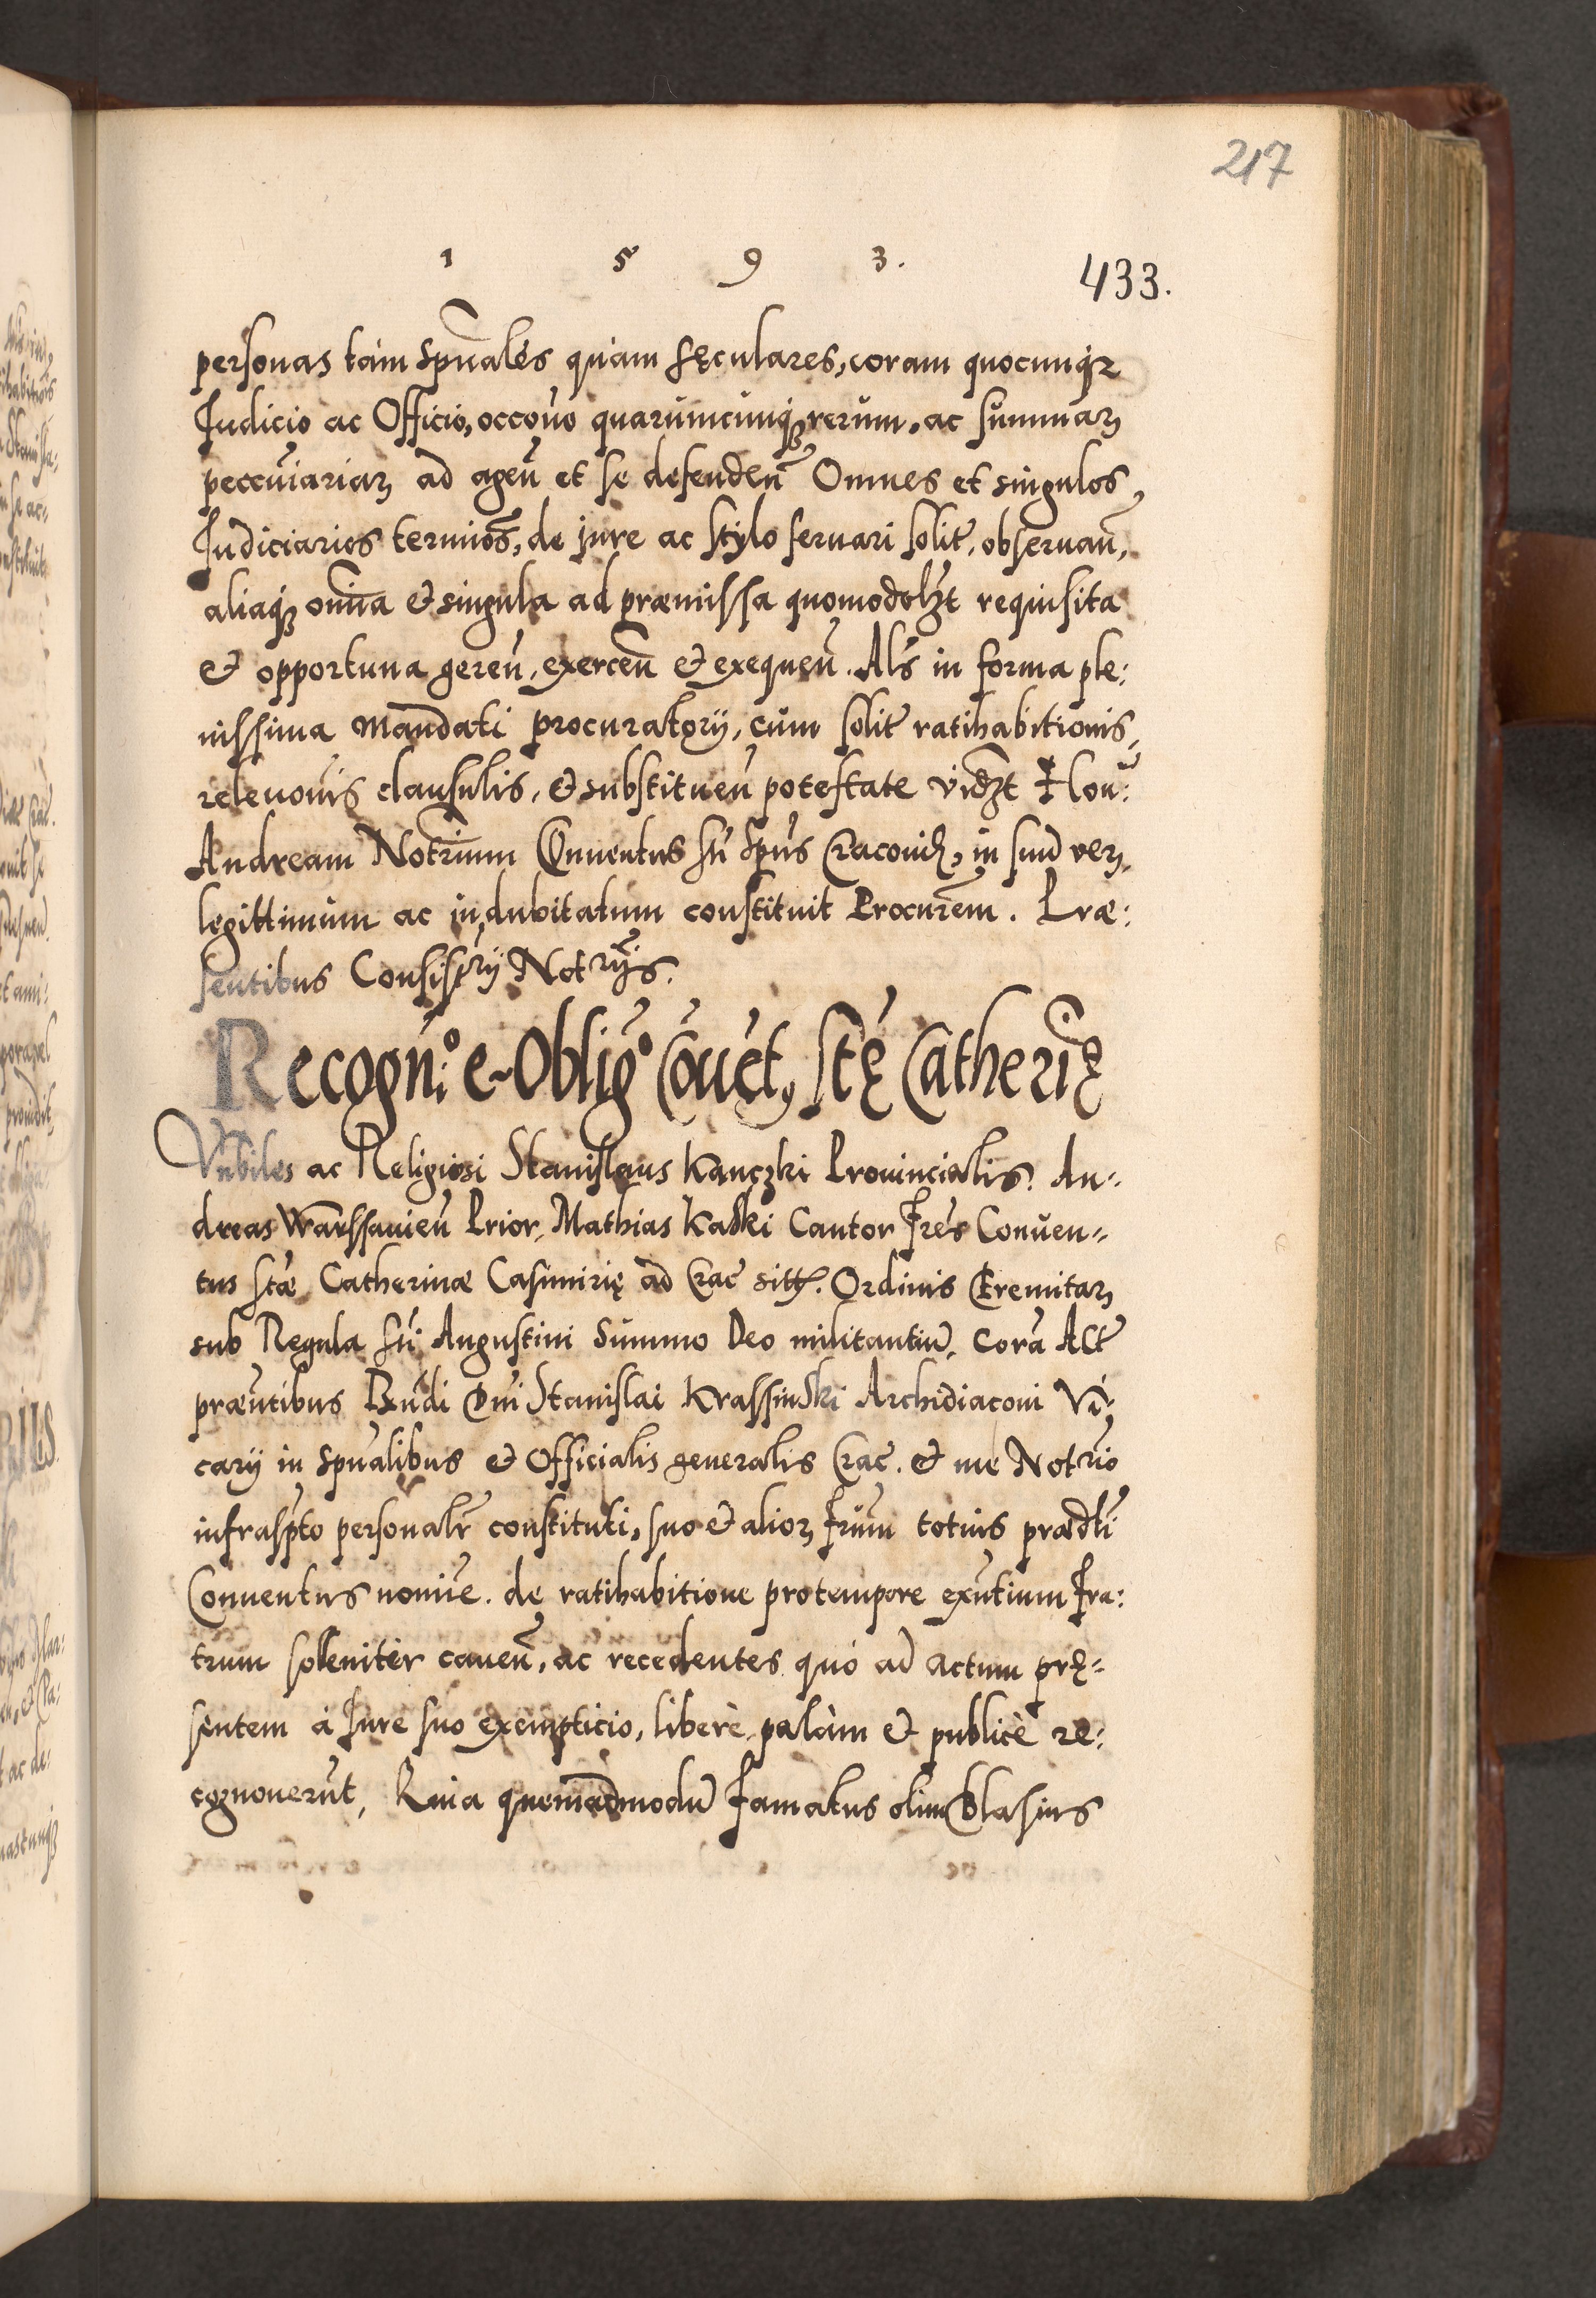 217
1 5 9 3.
433.
personas tàm spũales quàm sęculares, coram quocunq₃
Judicio ac Officio, occõne quarumcunq₃ rerum, ac summaꝝ
peccũiariaꝝ ad ageñ et se defendeñ Omnes et singulos
Judiciarios terminos, de jure ac stylo servari solit̃, observañ,
aliaq₃ omĩa et singula ad præmissa quomodolꝫt requisita
et opportuna gereñ, exerceñ et exequeñ. Als̃ in forma ple:
nissima Mandati procuratorij, cum solit̃ ratihabitionis,
relevoĩs clausulis, et substitueñ potestate vidꝫt Hon:
Andream Notrium Conventus Sti Spũs Cracovię, in suũ veꝝ,
legittimum ac indubitatum constituit Procurẽm. Præ:
sentibus Consistrij Notrijs.
Recogn: et Oblig: Cõuẽt, Stę Catherię
Vñbiles ac Religiosi Stanislaus Kanczki Provincialis. An-
dreas Warssavieñ Prior, Mathias Kaski Cantor Fres̃ Conven-
tus Stæ Catherinæ Casimirię ad Crac̃ sitt̃. Ordinis Eremitaꝝ
sub Regula Sti Augustini Summo Deo militantiũ, Corã Act̃
præñtibus Rñdi Dñi Stanislai Krassinski Archidiaconi Vi:
carij in spũalibus et Officialis generalis Crac̃. et me Notrio
infraspto personalr̃ constituti, suo et alioꝝ frũm totius prædti
Conventus nomĩe. de ratihabitione pro tempore exñtium Fra:
trum solleniter caveñ, ac recedentes quó ad actum prę-
sentem à Jure suo exempticio, liberè palàm et publicè re:
cognoverũt, Quia quemadmodũ Famatus olim Blasius